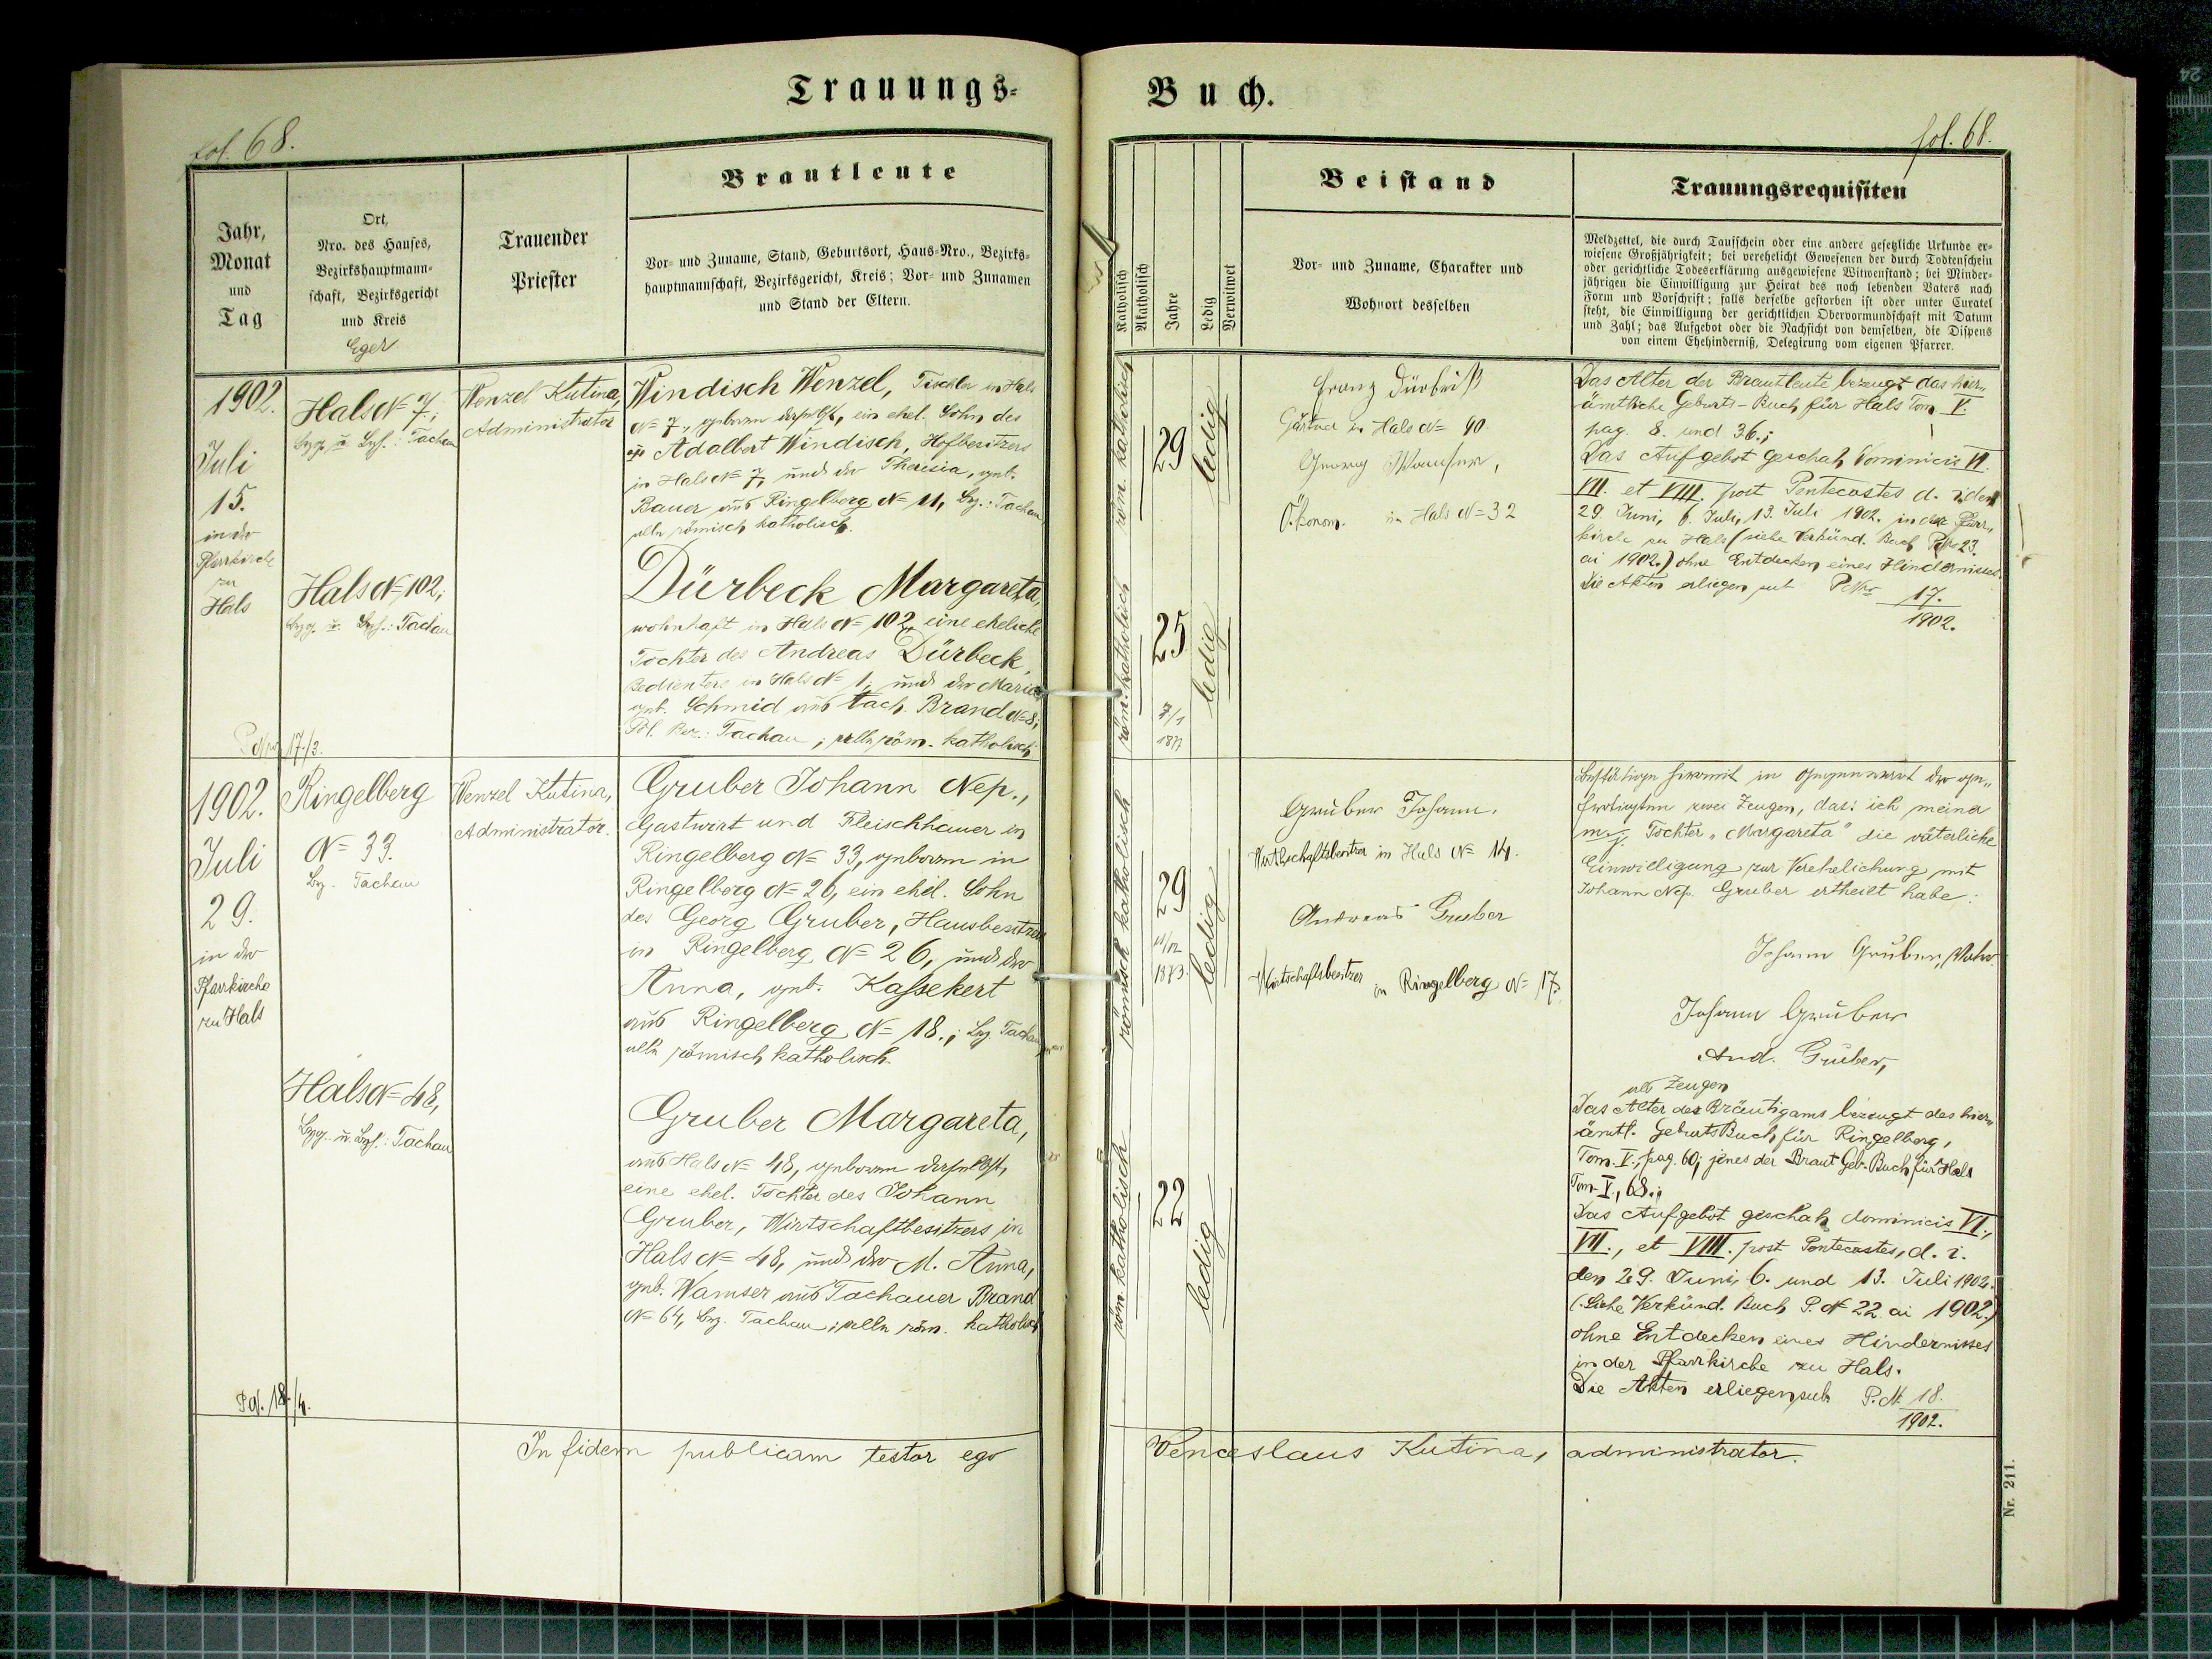 Trauungs-
fol. 68.
Jahr,
Monat
und
Tag
Ort,
Nro. des Hauses,
Bezirkshauptmann-
schaft, Bezirksgericht
und Kreis
Eger
Trauender
Priester
Brautleute
Vor- und Zuname, Stand, Geburtsort, Haus-Nro., Bezirks-
hauptmannschaft, Bezirksgericht, Kreis; Vor- und Zunamen
und Stand der Eltern.
1902.
Juli
15.
in der
Pfarrkirche
zu
Hals
Hals N= 7;
Tachau
Hals N= 102;
Tachau
Wenzel Kutina,
Administrator
Windisch Wenzel, Tischler in Hals
N= 7, geboren daselbst, ein ehel. Sohn des
Adalbert Windisch, Hofbesitzers
in Hals N= 7, und der Theresia, geb.
Bauer aus Ringelberg N= 11, Bez.: Tachau
alle römisch katholisch.
Dürbeck Margareta,
wohnhaft in Hals N= 102, eine eheliche
Tochter des Andreas Dürbeck,
Bedienters in Hals N= 1; und der Maria
geb. Schmid aus Tach. Brand N= 8;
Pol. Bez.: Tachau; alle röm. katholisch
17./3.
1902.
Juli
29.
in der
Pfarrkirche
zu Hals
Ringelberg
N= 33.
Bez. Tachau
Hals N= 48,
Tachau
Wenzel Kutina,
Administrator.
Gruber Johann Nep.,
Gastwirt und Fleischhauer in
Ringelberg N= 33, geboren in
Ringelberg N= 26, ein ehel. Sohn
des Georg Gruber, Hausbesitzers
in Ringelberg N= 26, und der
Anna, geb. Kassekert
aus Ringelberg N= 18.; Bez. Tachau
alle römisch katholisch.
Gruber Margareta,
aus Hals N= 48, geboren daselbst,
eine ehel. Tochter des Johann
Gruber, Wirtschaftbesitzers in
Hals N= 48, und der M. Anna,
geb. Wamser aus Tachauer Brand
N= 64, Bez. Tachau; alle röm. katholisch
18./4.
In fidem publicam testor ego
Buch.
fol. 68.
Katholisch
Akatholisch
Jahre
Ledig
Verwitwet
Beistand
Vor- und Zuname, Charakter und
Wohnort desselben
Trauungsrequisiten
Meldzettel, die durch Taufschein oder eine andere gesetzliche Urkunde er-
wiesene Großjährigkeit; bei verehelicht Gewesenen der durch Todtenschein
oder gerichtliche Todeserklärung ausgewiesene Witwenstand; bei Minder-
jährigen die Einwilligung zur Heirat des noch lebenden Vaters nach
Form und Vorschrift; falls derselbe gestorben ist oder unter Curatel
steht, die Einwilligung der gerichtlichen Obervormundschaft mit Datum
und Zahl; das Aufgebot oder die Nachsicht von demselben, die Dispens
von einem Ehehinderniß, Delegirung vom eigenen Pfarrer.
röm. katholisch
29
ledig
röm. katholisch
25
7/1
1877
ledig
Franz
Gärtner in Hals N= 40.
Georg
Ökonom. in Hals N= 32
Das Alter der Brautleute bezeugt das hier-
ämtliche Geburts-Buch für Hals Tom V.
pag. 8. und 36.;
Das Aufgebot geschah Dominicis VI.
VII. et VIII. post Pentecostes d. i. den
29. Juni, 6. Juli, 13. Juli 1902. in der Pfarr-
kirche zu Hals (siehe Verkünd. Buch 23.
ai 1902.) ohne Entdecken eines Hindernisses.
Die Akten erliegen sub
17.
1902.
römisch katholisch
29
1873.
ledig
röm. katholisch
22
ledig
Gruber Johann.
Wirthschaftsbesitzer in Hals N= 14.
Andreas Gruber
Wirtschaftsbesitzer in Ringelberg N= 17.
Bestätige hiermit in Gegenwart der ge-
fertigten zwei Zeugen, dass ich meiner
m. j. Tochter „Margareta" die väterliche
Einwilligung zur Verehelichung mit
Johann Nep. Gruber ertheilt habe:
Johann Gruber, Vater
Johann Gruber
And. Gruber,
als Zeugen
Das Alter des Bräutigams bezeugt des hier-
ämtl. Geburts Buch für Ringelberg,
Tom. V., pag. 60; jenes der Braut Geb. Buch für Hals
Tom V., 68.;
Das Aufgebot geschah dominicis VI.,
VII., et VIII. post Pentecostes, d. i.
den 29. Juni, 6. und 13. Juli 1902.
(Siehe Verkünd. Buch P. N 22 ai 1902.)
ohne Entdecken eines Hindernisses
in der Pfarrkirche zu Hals.
Die Akten erliegen sub P. N. 18.
1902.
Venceslaus Kutina, administrator.
Nr. 211.